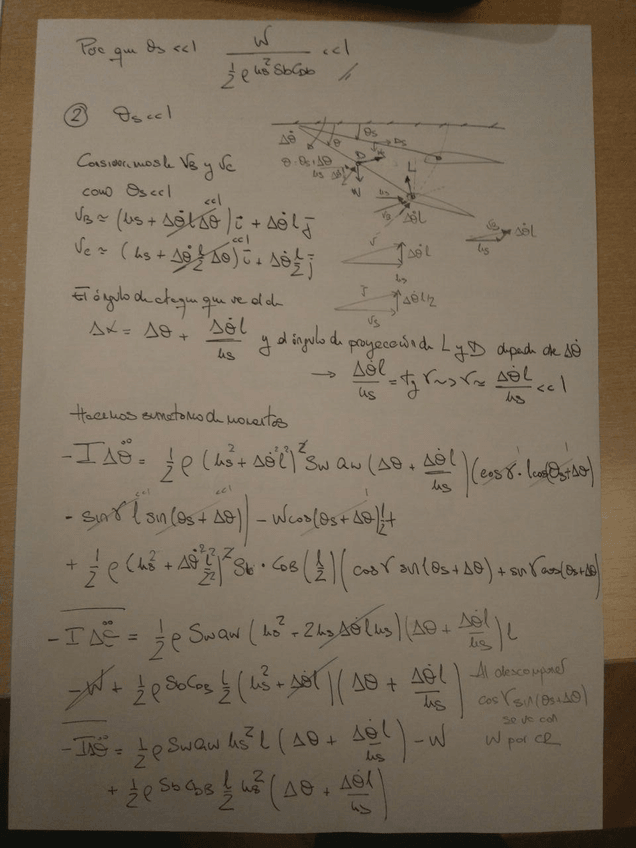 Por que θs <<1   W / (½ ρ us² Sb CDb) <<1
② θs <<1
Consideremos la VB y VC
como θs <<1
VB ≃ (us + Δθ̇ l Δθ) i + Δθ̇ l j
VC ≃ (us + Δθ̇ l/2 Δθ) i + Δθ̇ l/2 j
El ángulo de ataque que ve el ala
Δα = Δθ + Δθ̇ l / us   y el ángulo de proyección de L y D depende de Δθ̇
→ Δθ̇ l / us = tg γ ~> γ ≃ Δθ̇ l / us <<1
Hacemos sumatorio de momentos
- I Δθ̈ = ½ ρ (us² + Δθ̇² l²)² Sw aw (Δθ + Δθ̇ l / us) (cos γ · l cos(θs + Δθ)
- sin γ l sin(θs + Δθ)) - W cos(θs + Δθ) l/2 +
+ ½ ρ (us² + Δθ̇² l²/2²)² Sb · CDB (l/2) (cos γ sin(θs + Δθ) + sin γ cos(θs + Δθ)
- I Δθ̈ = ½ ρ Sw aw (us² + 2 us Δθ̇ l us) (Δθ + Δθ̇ l / us) l
- W + ½ ρ Sb CDB l/2 (us² + Δθ̇ l) (Δθ + Δθ̇ l / us)
Al descomponer
cos γ sin(θs + Δθ)
se va con
W por
- I Δθ̈ = ½ ρ Sw aw us² l (Δθ + Δθ̇ l / us) - W
+ ½ ρ Sb CDB l/2 us² (Δθ + Δθ̇ l / us)